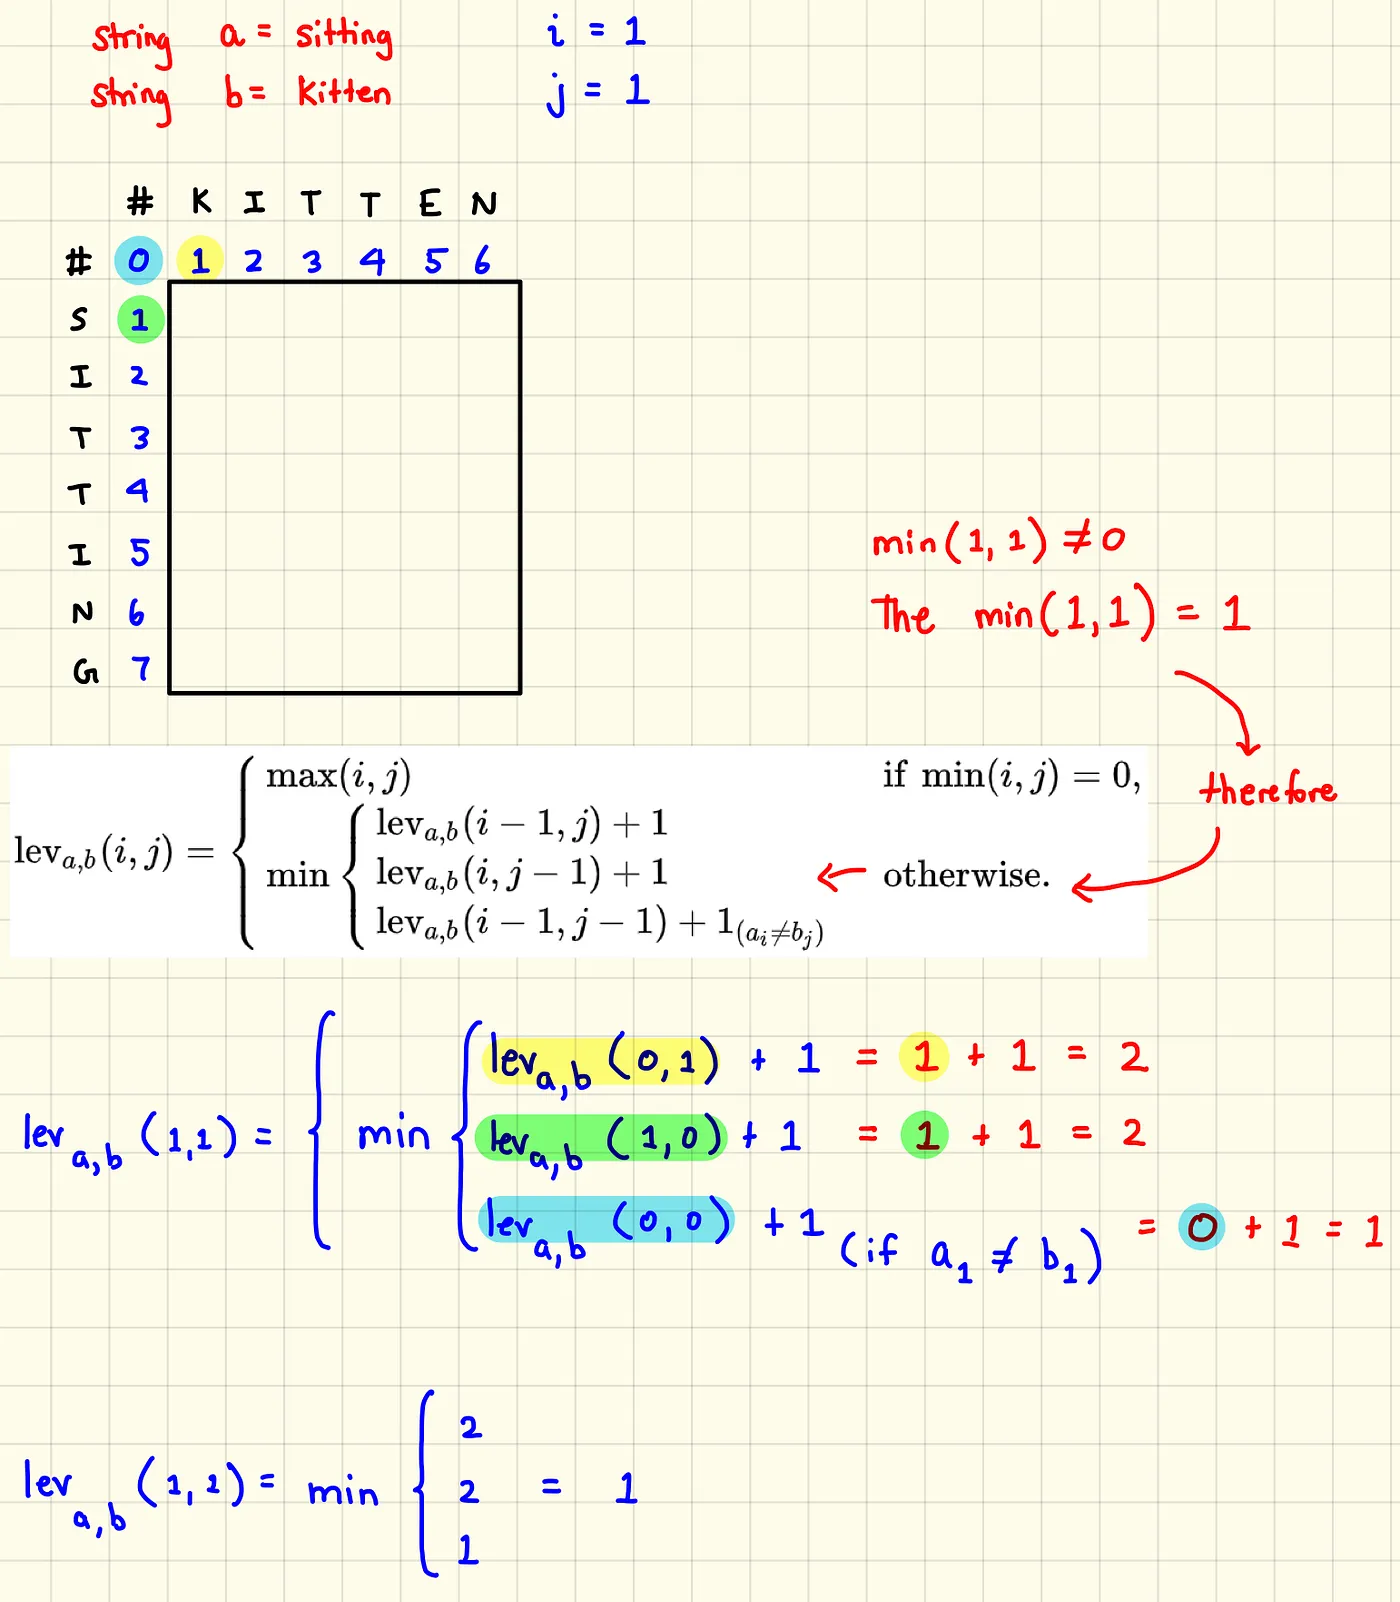 string a = sitting i = 1
string b = kitten j = 1
# K I T T E N
# 0 1 2 3 4 5 6
S 1
I 2
T 3
T 4
I 5
N 6
G 7
min(1,1) ≠ 0
The min(1,1) = 1
therefore
lev_{a,b}(i, j) = { max(i, j) if min(i, j) = 0,
min { lev_{a,b}(i − 1, j) + 1
lev_{a,b}(i, j − 1) + 1 ← otherwise.
lev_{a,b}(i − 1, j − 1) + 1_{(a_i≠b_j)}
lev_{a,b}(1,1) = { min { lev_{a,b}(0,1) + 1 = 1 + 1 = 2
lev_{a,b}(1,0) + 1 = 1 + 1 = 2
lev_{a,b}(0,0) + 1 (if a_1 ≠ b_1) = 0 + 1 = 1
lev_{a,b}(1,1) = min { 2
2 = 1
1